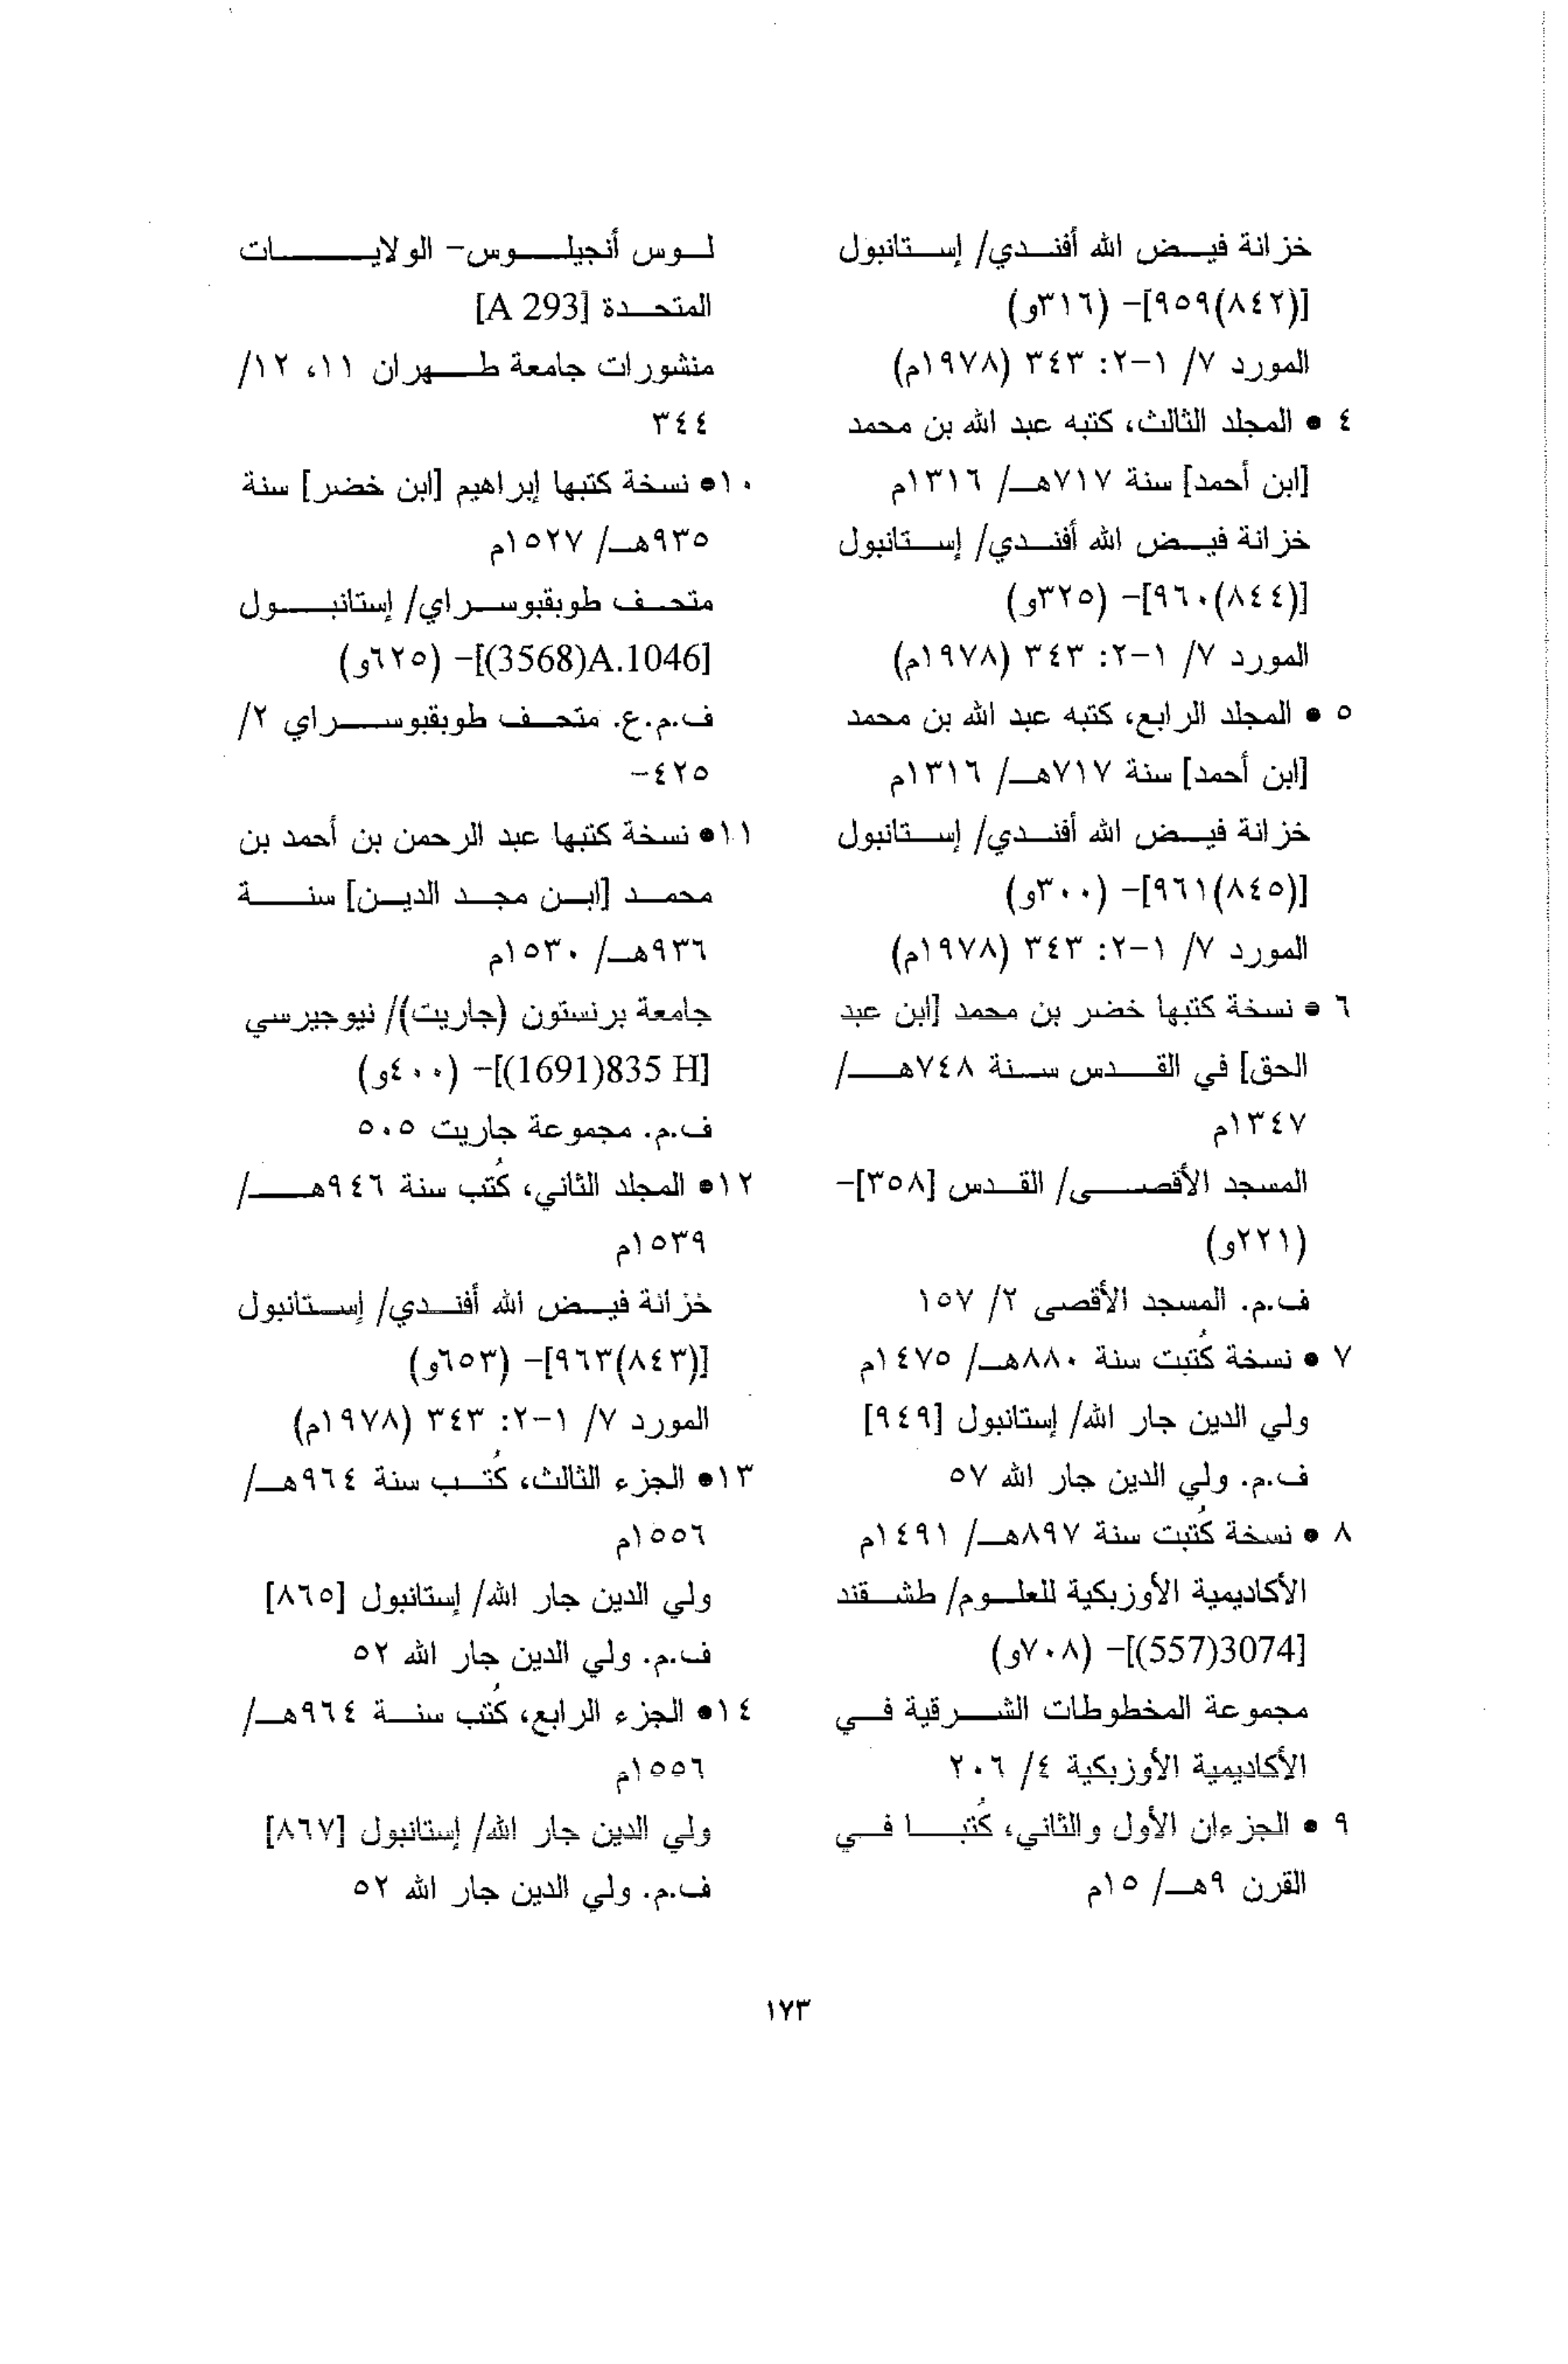 خزانة فيض الله أفندي/ إستانبول
[(٨٤٢)٩٥٩]- (٣١٦و)
المورد ٧/ ١-٢: ٣٤٣ (١٩٧٨م)
٤ • المجلد الثالث، كتبه عبد الله بن محمد
[ابن أحمد] سنة ٧١٧هـ/ ١٣١٦م
خزانة فيض الله أفندي/ إستانبول
[(٨٤٤)٩٦٠]- (٣٢٥و)
المورد ٧/ ١-٢: ٣٤٣ (١٩٧٨م)
٥ • المجلد الرابع، كتبه عبد الله بن محمد
[ابن أحمد] سنة ٧١٧هـ/ ١٣١٦م
خزانة فيض الله أفندي/ إستانبول
[(٨٤٥)٩٦١]- (٣٠٠و)
المورد ٧/ ١-٢: ٣٤٣ (١٩٧٨م)
٦ • نسخة كتبها خضر بن محمد [ابن عبد
الحق] في القدس سنة ٧٤٨هـ/
١٣٤٧م
المسجد الأقصى/ القدس [٣٥٨]-
(٢٢١و)
ف.م. المسجد الأقصى ٢/ ١٥٧
٧ • نسخة كُتبت سنة ٨٨٠هـ/ ١٤٧٥م
ولي الدين جار الله/ إستانبول [٩٤٩]
ف.م. ولي الدين جار الله ٥٧
٨ • نسخة كُتبت سنة ٨٩٧هـ/ ١٤٩١م
الأكاديمية الأوزبكية للعلوم/ طشقند
[3074(557)]- (٧٠٨و)
مجموعة المخطوطات الشرقية في
الأكاديمية الأوزبكية ٤/ ٢٠٦
٩ • الجزءان الأول والثاني، كُتبا في
القرن ٩هـ/ ١٥م
لوس أنجيلوس- الولايات
المتحدة [A 293]
منشورات جامعة طهران ١١، ١٢/
٣٤٤
١٠• نسخة كتبها إبراهيم [ابن خضر] سنة
٩٣٥هـ/ ١٥٢٧م
متحف طوبقبوسراي/ إستانبول
[A.1046(3568)]- (٦٢٥و)
ف.م.ع. متحف طوبقبوسراي ٢/
٤٢٥-
١١• نسخة كتبها عبد الرحمن بن أحمد بن
محمد [ابن مجد الدين] سنة
٩٣٦هـ/ ١٥٣٠م
جامعة برنستون (جاريت)/ نيوجيرسي
[835 H(1691)]- (٤٠٠و)
ف.م. مجموعة جاريت ٥٠٥
١٢• المجلد الثاني، كُتب سنة ٩٤٦هـ/
١٥٣٩م
خزانة فيض الله أفندي/ إستانبول
[(٨٤٣)٩٦٣]- (٦٥٣و)
المورد ٧/ ١-٢: ٣٤٣ (١٩٧٨م)
١٣• الجزء الثالث، كُتب سنة ٩٦٤هـ/
١٥٥٦م
ولي الدين جار الله/ إستانبول [٨٦٥]
ف.م. ولي الدين جار الله ٥٢
١٤• الجزء الرابع، كُتب سنة ٩٦٤هـ/
١٥٥٦م
ولي الدين جار الله/ إستانبول [٨٦٧]
ف.م. ولي الدين جار الله ٥٢
١٧٣